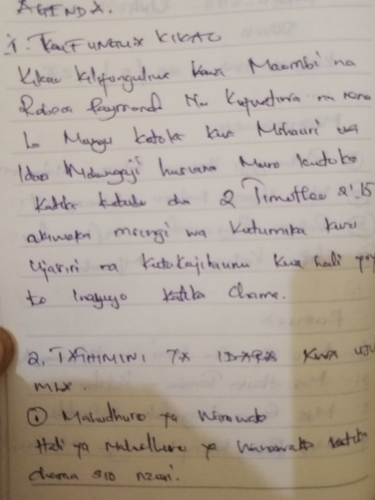 AGENDA.
1. KUFUNGUA KIKAO
Kikao kilifunguliwa kwa Maombi na
Rebeca Raymond Na kufuatiwa na neno
la Mungu kutoka kwa Mshauri wa
Idara Ndugu
katika kitabu cha 2 Timotheo 2:15
akiweka msingi wa kutumika kwa
Ujasiri na kutokujihaunu kwa hali yoyo
te inayuyo katika Chama.
2. TATHIMINI YA IDARA KWA UJU
MLA.
① Mahudhurio ya Wanawake
Hali ya Mahudhurio ya Wanawake katika
chama sio nzuri.